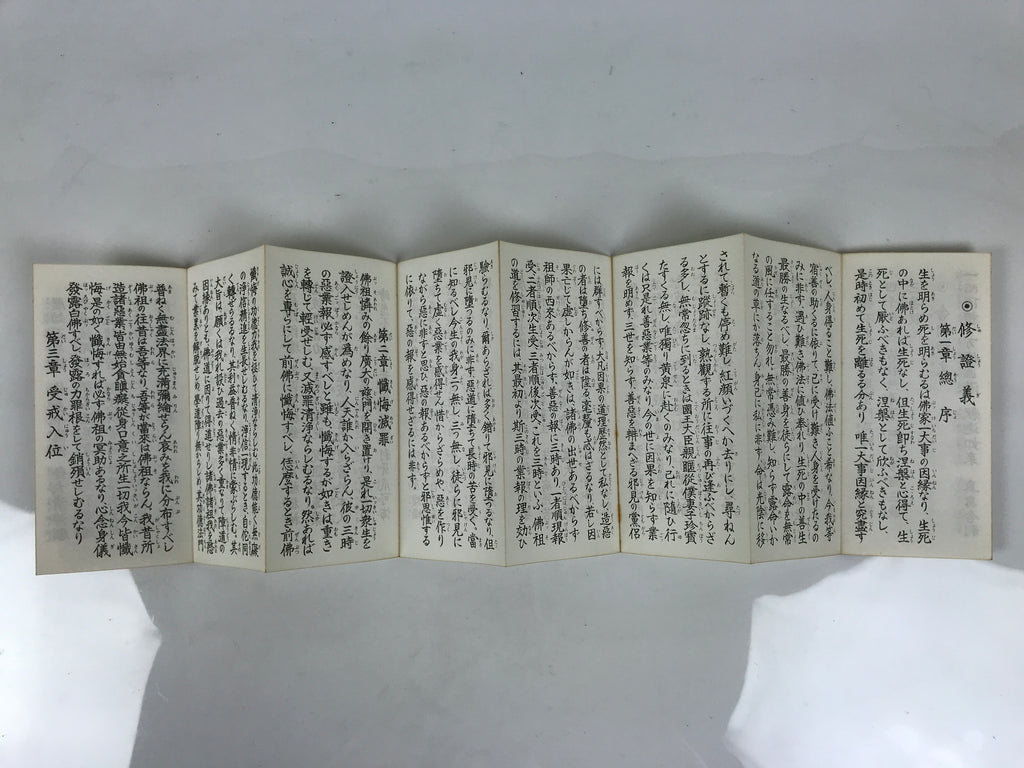 ◉修證義
第一章 總序
生を明らめ死を明らむるは佛家一大事の因緣なり、生死
の中に佛あれば生死なし、但生死即ち涅槃と心得て、生
死として厭ふべきもなく、涅槃として欣ふべきもなし、
是時初めて生死を離るる分あり、唯一大事因緣と究盡す
べし、人身得ること難し、佛法値ふこと希れなり、今我等
宿善の助くるに依りて、已に受け難き人身を受けたるの
みに非ず、遇ひ難き佛法に値ひ奉れり、生死の中の善生、
最勝の生なるべし、最勝の善身を徒らにして露命を無常
の風に任すること勿れ、無常憑み難し、知らず露命いか
なる道の草にか落ちん、身已に私に非ず、命は光陰に移
されて暫くも停め難し、紅顏いづくへか去りにし、尋ねん
とするに蹤跡なし、熟觀ずる所に往事の再び逢ふべからざ
る多し、無常忽ちに到るときは國王大臣親暱從僕妻子珍寶
たすくる無し、唯獨り黃泉に趣くのみなり、己れに隨ひ行
くは只是れ善惡業等のみなり、今の世に因果を知らず業
報を明らめず、三世を知らず、善惡を辨まへざる邪見の黨侶
には群すべからず、大凡因果の道理歷然として私なし、造惡
の者は墮ち修善の者は陞る、毫釐も忒はざるなり、若し因
果亡じて虛しからんが如きは、諸佛の出世あるべからず、
祖師の西來あるべからず、善惡の報に三時あり、一者順現報
受、二者順次生受、三者順後次受、これを三時といふ、佛祖
の道を修習するには、其最初より斯三時の業報の理を効ひ
驗らむるなり、爾あらざれば多く錯りて邪見に墮つるなり、但
邪見に墮つるのみに非ず、惡道に墮ちて長時の苦を受く、當
に知るべし今生の我身二つ無し、三つ無し、徒らに邪見に
墮ちて虛く惡業を感得せん、惜からざらめや、惡を作り
ながら惡に非ずと思ひ、惡の報あるべからずと邪思惟する
に依りて、惡の報を感得せざるには非ず、
第二章 懺悔滅罪
佛祖憐みの餘り廣大の慈門を開き置けり、是れ一切衆生を
證入せしめんが爲めなり、人天誰か入らざらん、彼の三時
の惡業報必ず感ずべしと雖も、懺悔するが如きは重き
を轉じて輕受せしむ、又滅罪清淨ならしむるなり、然あれば
誠心を專らにして前佛に懺悔すべし、恁麼するとき前佛
懺悔の功德力我を拯ひて清淨ならしむ、此功德能く無礙
の淨信精進を生長せしむるなり、淨信一現するとき、自佗同
く轉ぜらるるなり、其利益普ねく情非情に蒙ぶらしむ、其
大旨は、願くは我れ設ひ過去の惡業多く重なりて障道の
因緣ありとも、佛道に因りて得道せりし諸佛諸祖我を愍
みて業累を解脫せしめ、學道障り無からしめ、其功德法門
普ねく無盡法界に充滿彌綸せらん、哀みを我に分布すべし
佛祖の往昔は吾等なり、吾等が當來は佛祖ならん、我昔所
造諸惡業皆由無始貪瞋癡從身口意之所生一切我今皆懺
悔、是の如く懺悔すれば必ず佛祖の冥助あるなり、心念身儀
發露白佛すべし、發露の力罪根をして銷殞せしむるなり
第三章 受戒入位